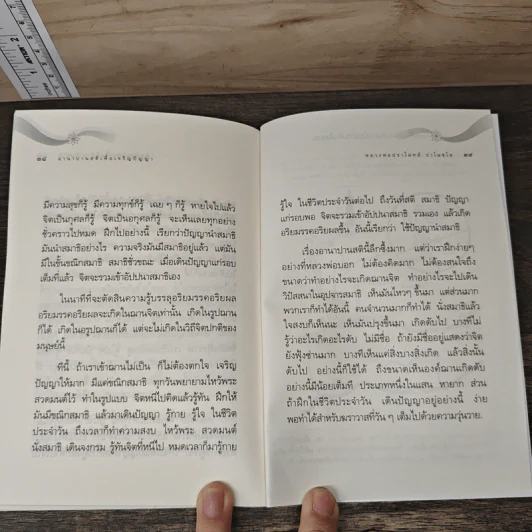 ๒๘ อานาปานสติเพื่อเจริญปัญญา
มีความสุขก็รู้ มีความทุกข์ก็รู้ เฉย ๆ ก็รู้ หายใจไปแล้ว
จิตเป็นกุศลก็รู้ จิตเป็นอกุศลก็รู้ จะเห็นเลยทุกอย่าง
ชั่วคราวไปหมด ฝึกไปอย่างนี้ เรียกว่าปัญญานำสมาธิ
มันนำสมาธิอย่างไร ความจริงมันมีสมาธิอยู่แล้ว แต่มัน
มีในขั้นขณิกสมาธิ สมาธิชั่วขณะ เมื่อเดินปัญญาแก่รอบ
เต็มที่แล้ว จิตจะรวมเข้าอัปปนาสมาธิเอง
ในนาทีที่จะตัดสินความรู้บรรลุอริยมรรคอริยผล
อริยมรรคอริยผลจะเกิดในฌานจิตเท่านั้น เกิดในรูปฌาน
ก็ได้ เกิดในอรูปฌานก็ได้ แต่จะไม่เกิดในวิถีจิตปกติของ
มนุษย์นี้
ทีนี้ ถ้าเราเข้าฌานไม่เป็น ก็ไม่ต้องตกใจ เจริญ
ปัญญาให้มาก มีแค่ขณิกสมาธิ ทุกวันพยายามไหว้พระ
สวดมนต์ไว้ ทำในรูปแบบ จิตหนีไปคิดแล้วรู้ทัน ฝึกให้
มันมีขณิกสมาธิ แล้วมาเดินปัญญา รู้กาย รู้ใจ ในชีวิต
ประจำวัน ถึงเวลาก็ทำความสงบ ไหว้พระ สวดมนต์
นั่งสมาธิ เดินจงกรม รู้ทันจิตที่หนีไป หมดเวลาก็มารู้กาย
หลวงพ่อปราโมทย์ ปาโมชฺโช ๒๙
รู้ใจ ในชีวิตประจำวันต่อไป ถึงวันที่สติ สมาธิ ปัญญา
แก่รอบพอ จิตจะรวมเข้าอัปปนาสมาธิ รวมเอง แล้วเกิด
อริยมรรคอริยผลขึ้น อันนี้เรียกว่า ใช้ปัญญานำสมาธิ
เรื่องอานาปานสตินี้ลึกซึ้งมาก แต่ว่าเราฝึกง่ายๆ
อย่างที่หลวงพ่อบอก ไม่ต้องคิดมาก ไม่ต้องสนใจถึง
ขนาดว่าทำอย่างไรจะเกิดฌานจิต ทำอย่างไรจะไปเดิน
วิปัสสนาในอุปจารสมาธิ เห็นมันไหวๆ ขึ้นมา แต่ส่วนมาก
พวกเราก็ทำได้อันนี้ คนจำนวนมากก็ทำได้ นั่งสมาธิแล้ว
ใจสงบก็เห็นนะ เห็นมันปรุงขึ้นมา เกิดดับไป บางทีไม่
รู้ว่าอะไรเกิดอะไรดับ ไม่มีชื่อ ถ้ายังมีชื่ออยู่แสดงว่าจิต
ยังฟุ้งซ่านมาก บางทีเห็นแค่สิ่งบางสิ่งเกิด แล้วสิ่งนั้น
ดับไป อย่างนี้ก็ใช้ได้ ถึงขนาดเห็นองค์ฌานเกิดดับ
อย่างนี้มีน้อยเต็มที ประเภทหนึ่งในแสน หายาก ส่วน
ถ้าฝึกในชีวิตประจำวัน เดินปัญญาอยู่อย่างนี้ ง่าย
พอทำได้สำหรับฆราวาสที่วัน ๆ เต็มไปด้วยความวุ่นวาย.